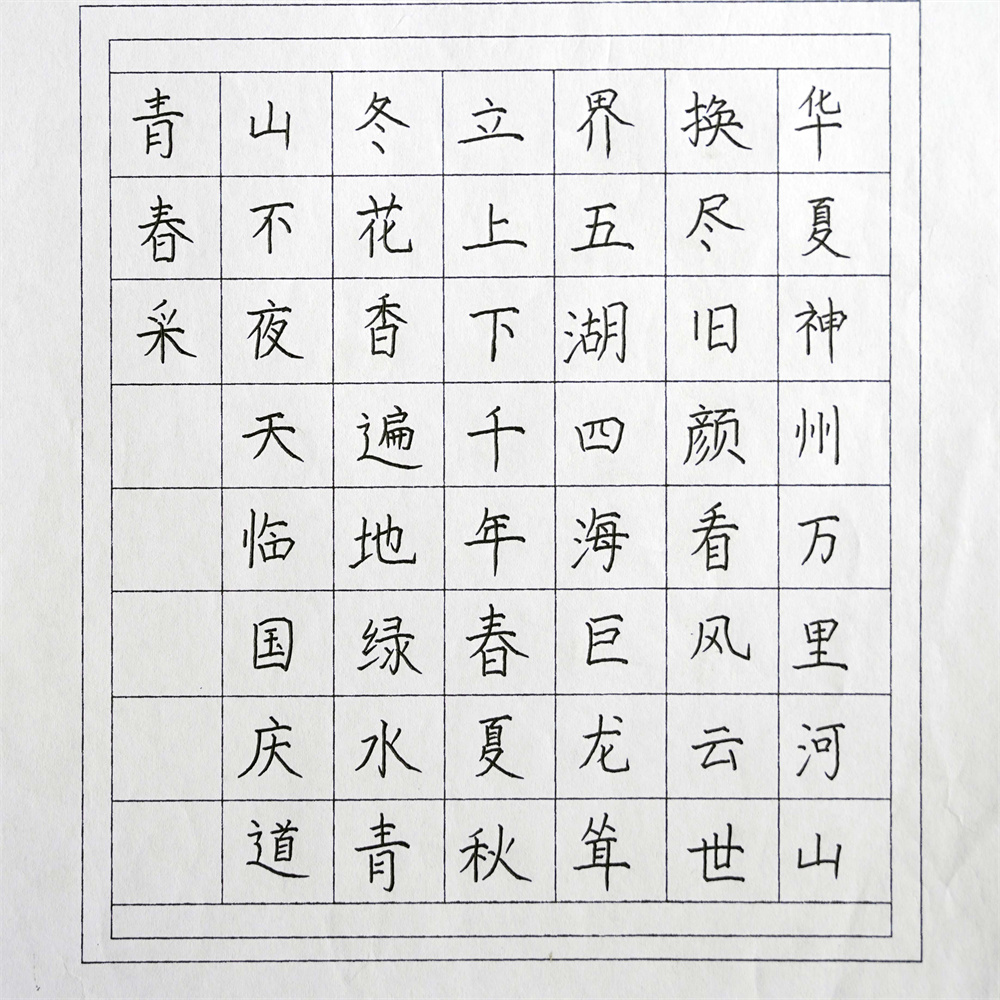 华夏神州万里河山
换尽旧颜看风云世
界五湖四海巨龙耸
立上下千年春夏秋
冬花香遍地绿水青
山不夜天临国庆道
青春采